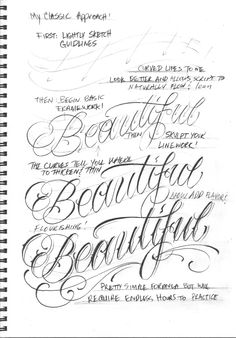 MY CLASSIC APPROACH!
FIRST: LIGHTLY SKETCH
GUIDLINES
CURVED LINES TO ME
LOOK BETTER AND ALLOWS SCRIPT TO
NATURALLY FLOW!
THEN: BEGIN BASIC
FRAMEWORK!
Beautiful
THEN: SKULPT YOUR
LINEWORK!
THE CURVES TELL YOU WHERE
TO THICKEN/THIN
Beautiful
ADD FLAVOR!
FLOURISHING!
Beautiful
PRETTY SIMPLE FORMULA BUT WILL
REQUIRE ENDLESS HOURS TO PRACTICE